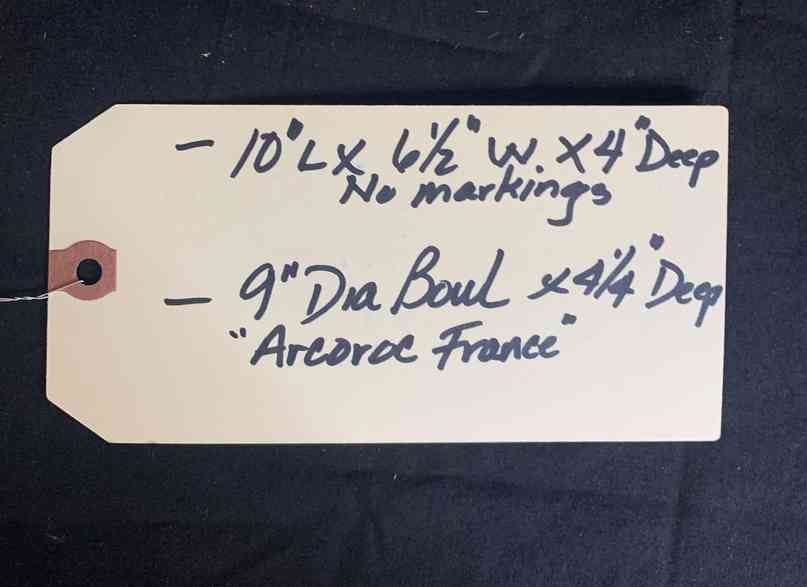 - 10" L X 6 1/2" W. X 4" Deep
No markings
- 9" Dia Bowl x 4 1/4" Deep
"Arcoroc France"